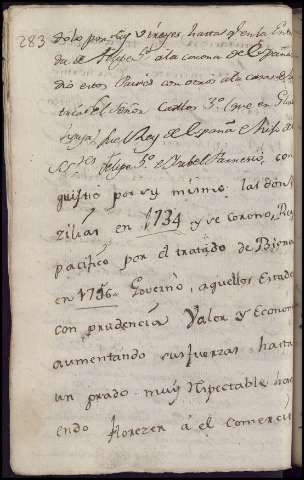 283 dolo por los Virreyes hasta q.e en la Entra
da de Felipe 5.º a la corona de España
dio estos Paises con otros a la casa de Aus
tria el Señor Carlos 3.º (que en Glo
Rey de España e Hijo de
S.res Felipe 5.º e Isabel Farnecio, con
quistió por sy mismo las dos
zilias en 1734 y se corono, Rey
pacifico por el tratado de Biena
en 1736 Governo, aquellos Estado
con prudencia Valor y Econom
aumentando sus fuerzas hasta
un grado muy Rspectable haci
endo florezer á el comerci